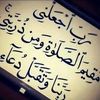 رَبِّ اجْعَلْنِي
مُقِيمَ الصَّلَوٰةِ وَمِن ذُرِّيَّتِي
رَبَّنَا وَتَقَبَّلْ دُعَاءِ